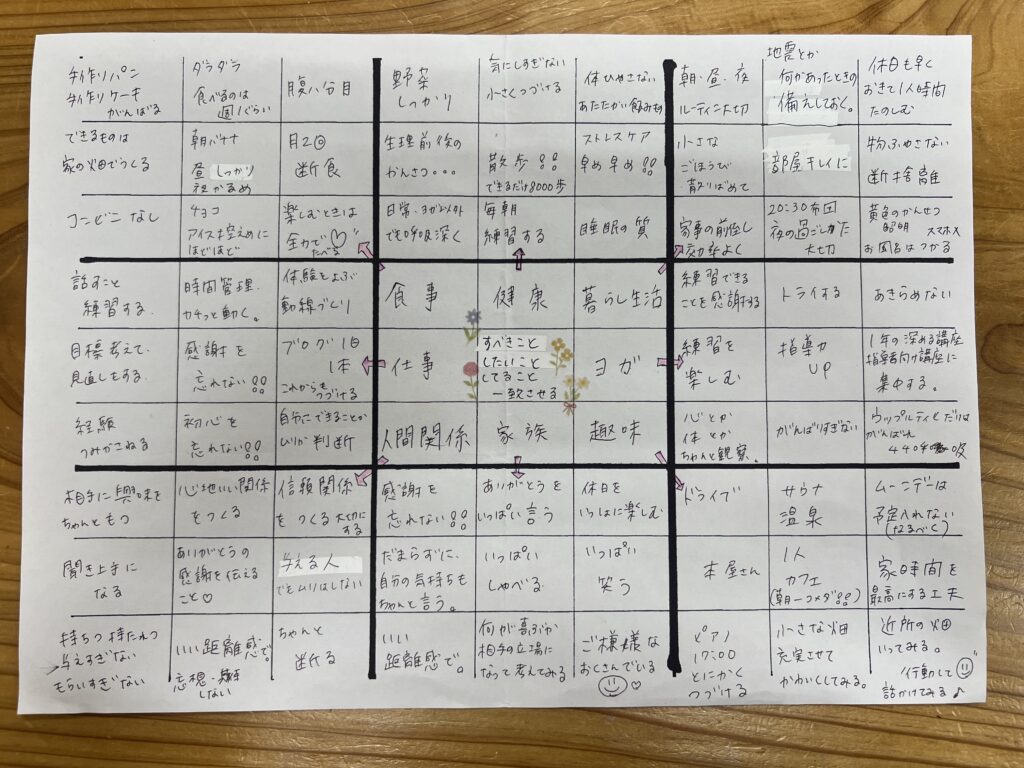 手作りパン
手作りケーキ
がんばる
ダラダラ
食べるのは
週1ぐらい
腹八分目
できるものは
家の畑でつくる
朝バナナ
昼 しっかり
夜かるめ
月2回
断食
コンビニなし
チョコ
アイス控えめに
ほどほど
楽しむときは
全力で♡
たべる
野菜
しっかり
気にしすぎない
小さくつづける
体ひやさない
あたたかい飲みもの
生理前後の
かんさつ・・・
散歩!!
できるだけ8000歩
ストレスケア
早め早め!!
日常・ヨガ以外
でも呼吸深く
毎朝
練習する
睡眠の質
朝・昼・夜
ルーティン大切
地震とか
何があったときの
備えしておく。
休日も早く
おきて1人時間
たのしむ
小さな
ごほうび
散りばめて
部屋キレイに
物ふやさない
断捨離
家事の前倒し
効率よく
20:30布団
夜の過ごしかた
大切
黄色のかんせつ
照明 スマホ×
お風呂はつかる
話すこと
練習する
時間管理。
カチッと動く。
体験をよぶ
動線づくり
目標考えて、
見直しをする。
感謝を
忘れない!!
ブログ1日
1本
これからも
つづける
経験
つみかさねる
初心を
忘れない!!
自分にできることか
ムリか判断
食事
健康
暮らし生活
仕事
すべきこと
したいこと
してること
一致させる
ヨガ
人間関係
家族
趣味
練習できる
ことを感謝する
トライする
あきらめない
練習を
楽しむ
指導力
UP
1年の深める講座
指導者向け講座に
集中する。
心とか
体とか
ちゃんと観察。
がんばりすぎない
ウップルティヒだけは
がんばれ
相手に興味を
ちゃんともつ
心地いい関係
をつくる
信頼関係
をつくる 大切に
する
聞き上手に
なる
ありがとうの
感謝を伝える
こと♡
与える人
でもムリはしない
持ちつ持たれつ
与えすぎない
もらいすぎない
いい距離感で。
しない
ちゃんと
断る
感謝を
忘れない!!
ありがとうを
いっぱい言う
休日を
いっしょに楽しむ
だまらずに、
自分の気持ちも
ちゃんと言う。
いっぱい
しゃべる
いっぱい
笑う
いい
距離感で。
何が喜ぶか
相手の立場に
なって考えてみる
ご機嫌な
おくさんでいる
♡
ドライブ
サウナ
温泉
ムーンデーは
予定入れない
(なるべく)
本屋さん
1人
カフェ
(朝一コメダ!!)
家時間を
最高にする工夫
ピアノ
17:00
とにかく
つづける
小さな畑
充実させて
かわいくしてみる。
近所の畑
いってみる。
行動して
話かけてみる♪